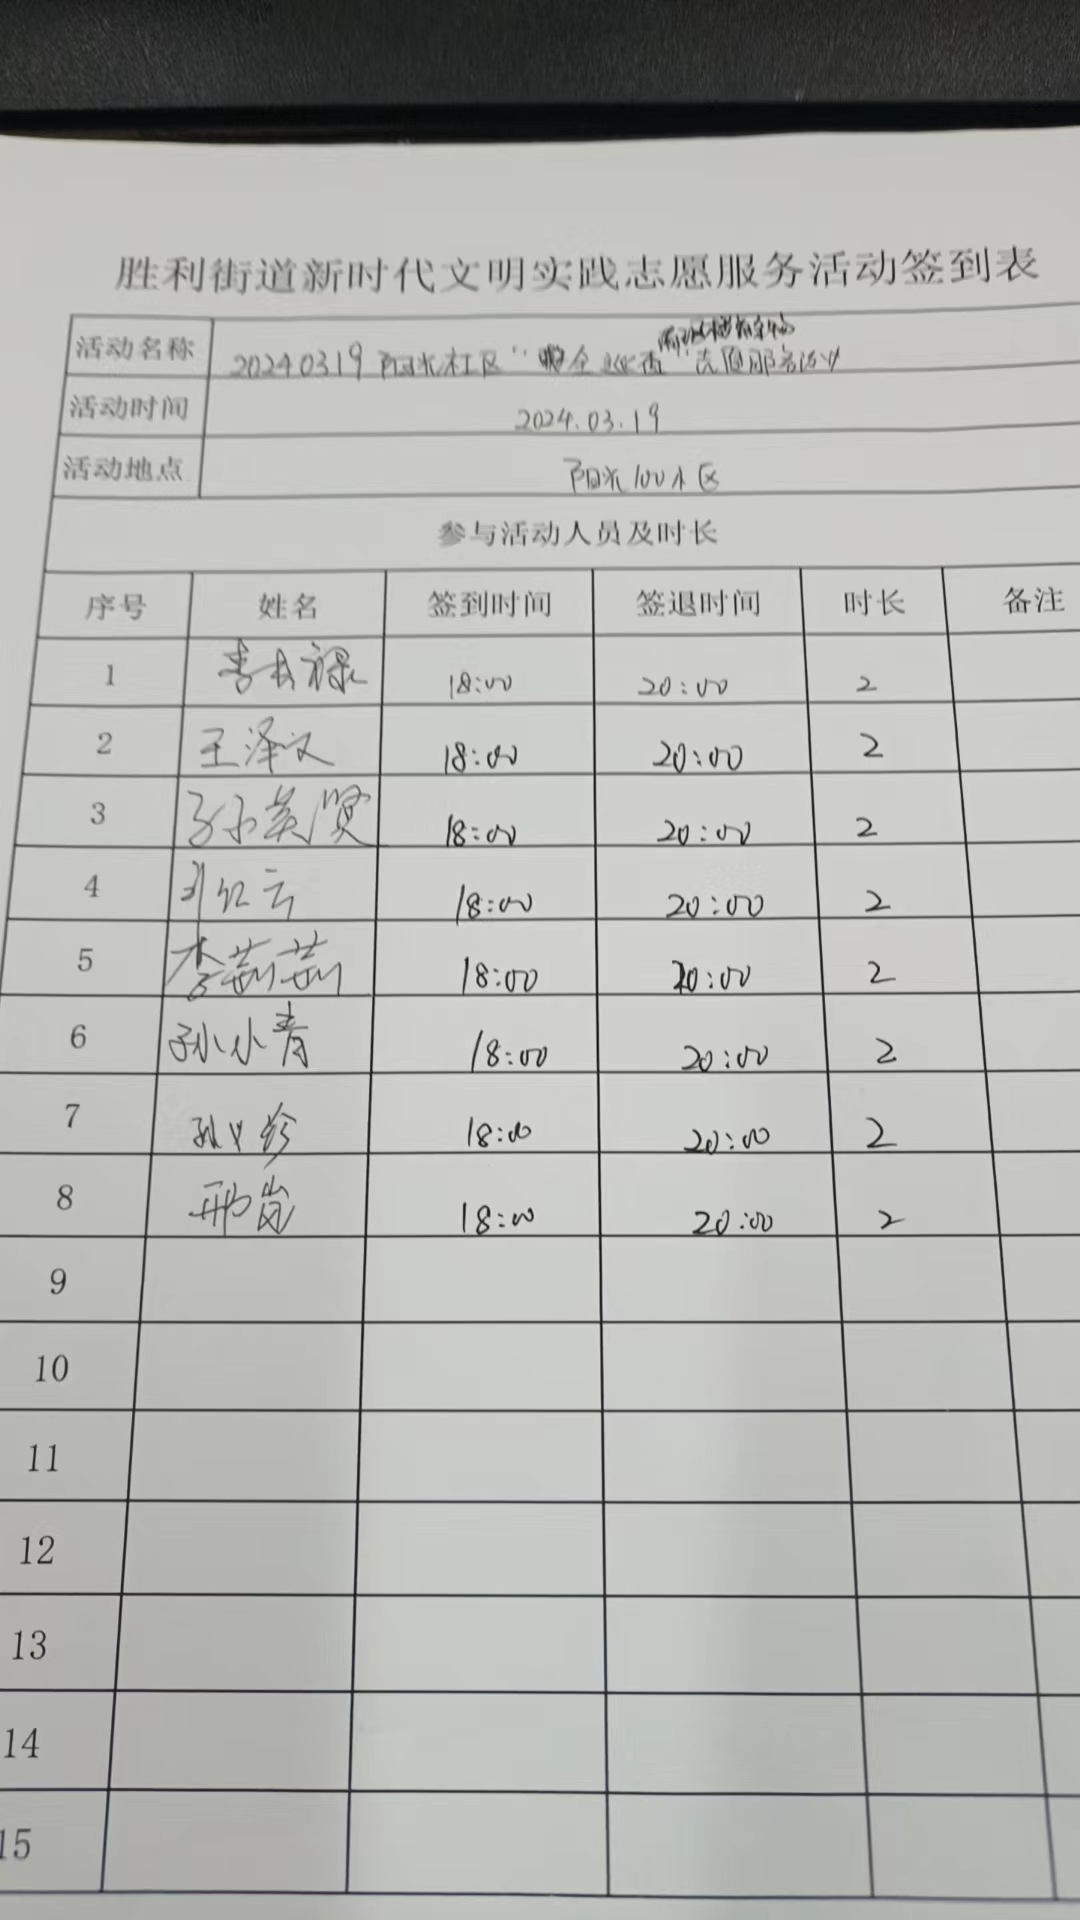 胜利街道新时代文明实践志愿服务活动签到表
活动名称 20240319 阳光社区 "安全巡查" 志愿服务活动
活动时间 2024.03.19
活动地点 阳光100小区
参与活动人员及时长
序号 姓名 签到时间 签退时间 时长 备注
1 18:00 20:00 2
2 王泽文 18:00 20:00 2
3 孙英贤 18:00 20:00 2
4 红云 18:00 20:00 2
5 李茹茹 18:00 20:00 2
6 孙小青 18:00 20:00 2
7 孙 18:00 20:00 2
8 邢岚 18:00 20:00 2
9
10
11
12
13
14
15